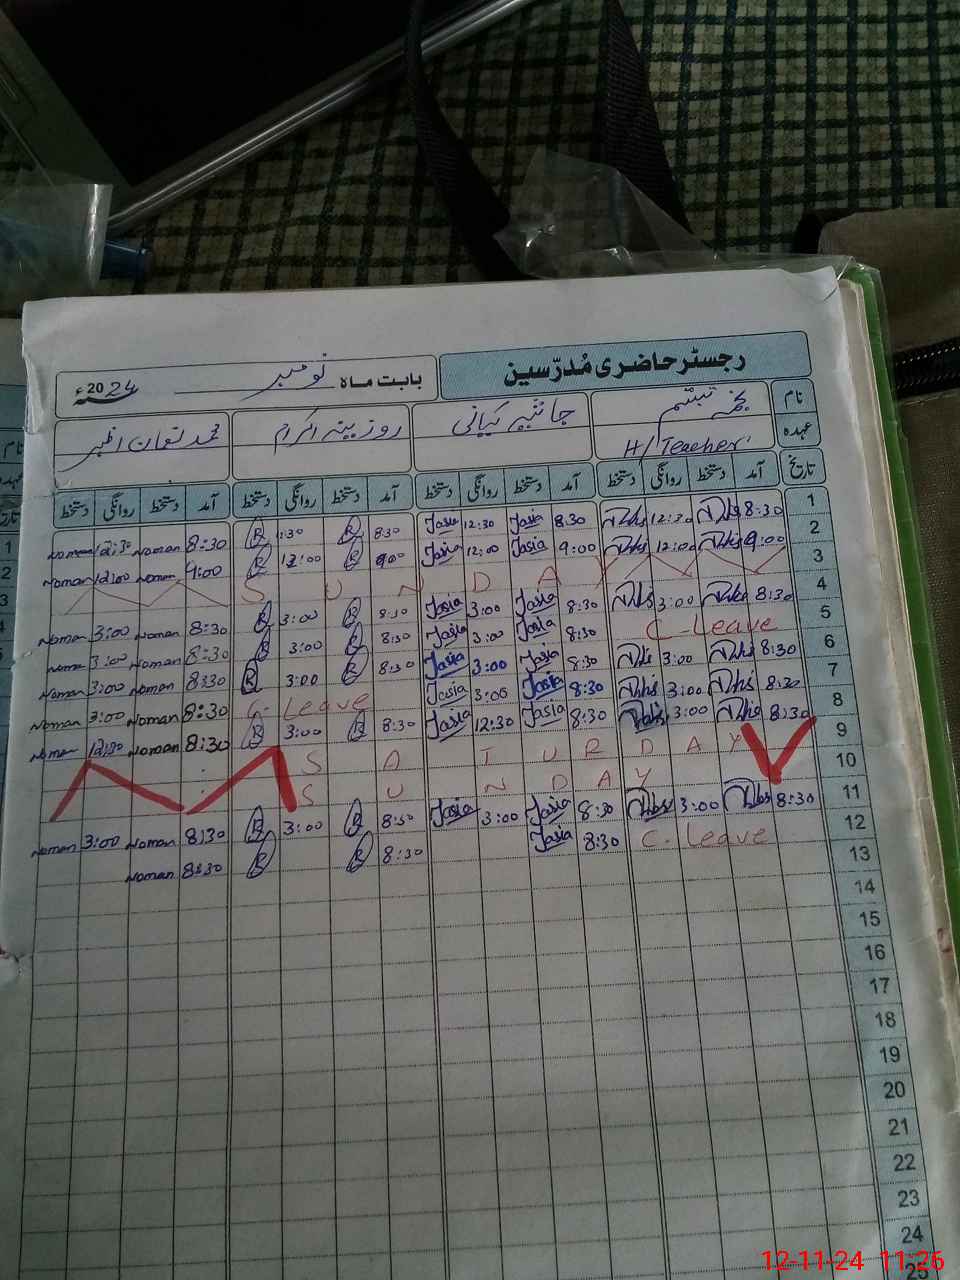 رجسٹر حاضری مُدرّسین
بابت ماہ نومبر 2024ء
نام نجمہ تبسم جاثیہ کیانی روزینہ اکرام محمد نعمان اظہر
عہدہ H/Teacher
تاریخ آمد دستخط روانگی دستخط آمد دستخط روانگی دستخط آمد دستخط روانگی دستخط آمد دستخط روانگی دستخط
1 8:30 12:30 8:30 Jasia 12:30 Jasia 8:30 R 1:30 R 8:30 Noman 12:30 Noman
2 9:00 12:00 9:00 Jasia 12:00 Jasia 9:00 R 12:00 R 9:00 Noman 12:00 Noman
3 SUNDAY
4 8:30 3:00 8:30 Jasia 3:00 Jasia 8:30 R 3:00 R 8:30 Noman 3:00 Noman
5 C-Leave 8:30 Jasia 3:00 Jasia 8:30 R 3:00 R 8:30 Noman 3:00 Noman
6 8:30 3:00 8:30 Jasia 3:00 Jasia 8:30 R 3:00 R 8:30 Noman 3:00 Noman
7 8:30 3:00 8:30 Jasia 3:00 Jasia C-Leave 8:30 Noman 3:00 Noman
8 8:30 3:00 8:30 Jasia 12:30 Jasia 8:30 R 3:00 R 8:30 Noman 12:30 Noman
9 SATURDAY
10 SUNDAY
11 8:30 3:00 8:30 Jasia 3:00 Jasia 8:30 R 3:00 R 8:30 Noman 3:00 Noman
12 C-Leave 8:30 Jasia 8:30 R R 8:30 Noman
13
14
15
16
17
18
19
20
21
22
23
24
25
12-11-24 11:26